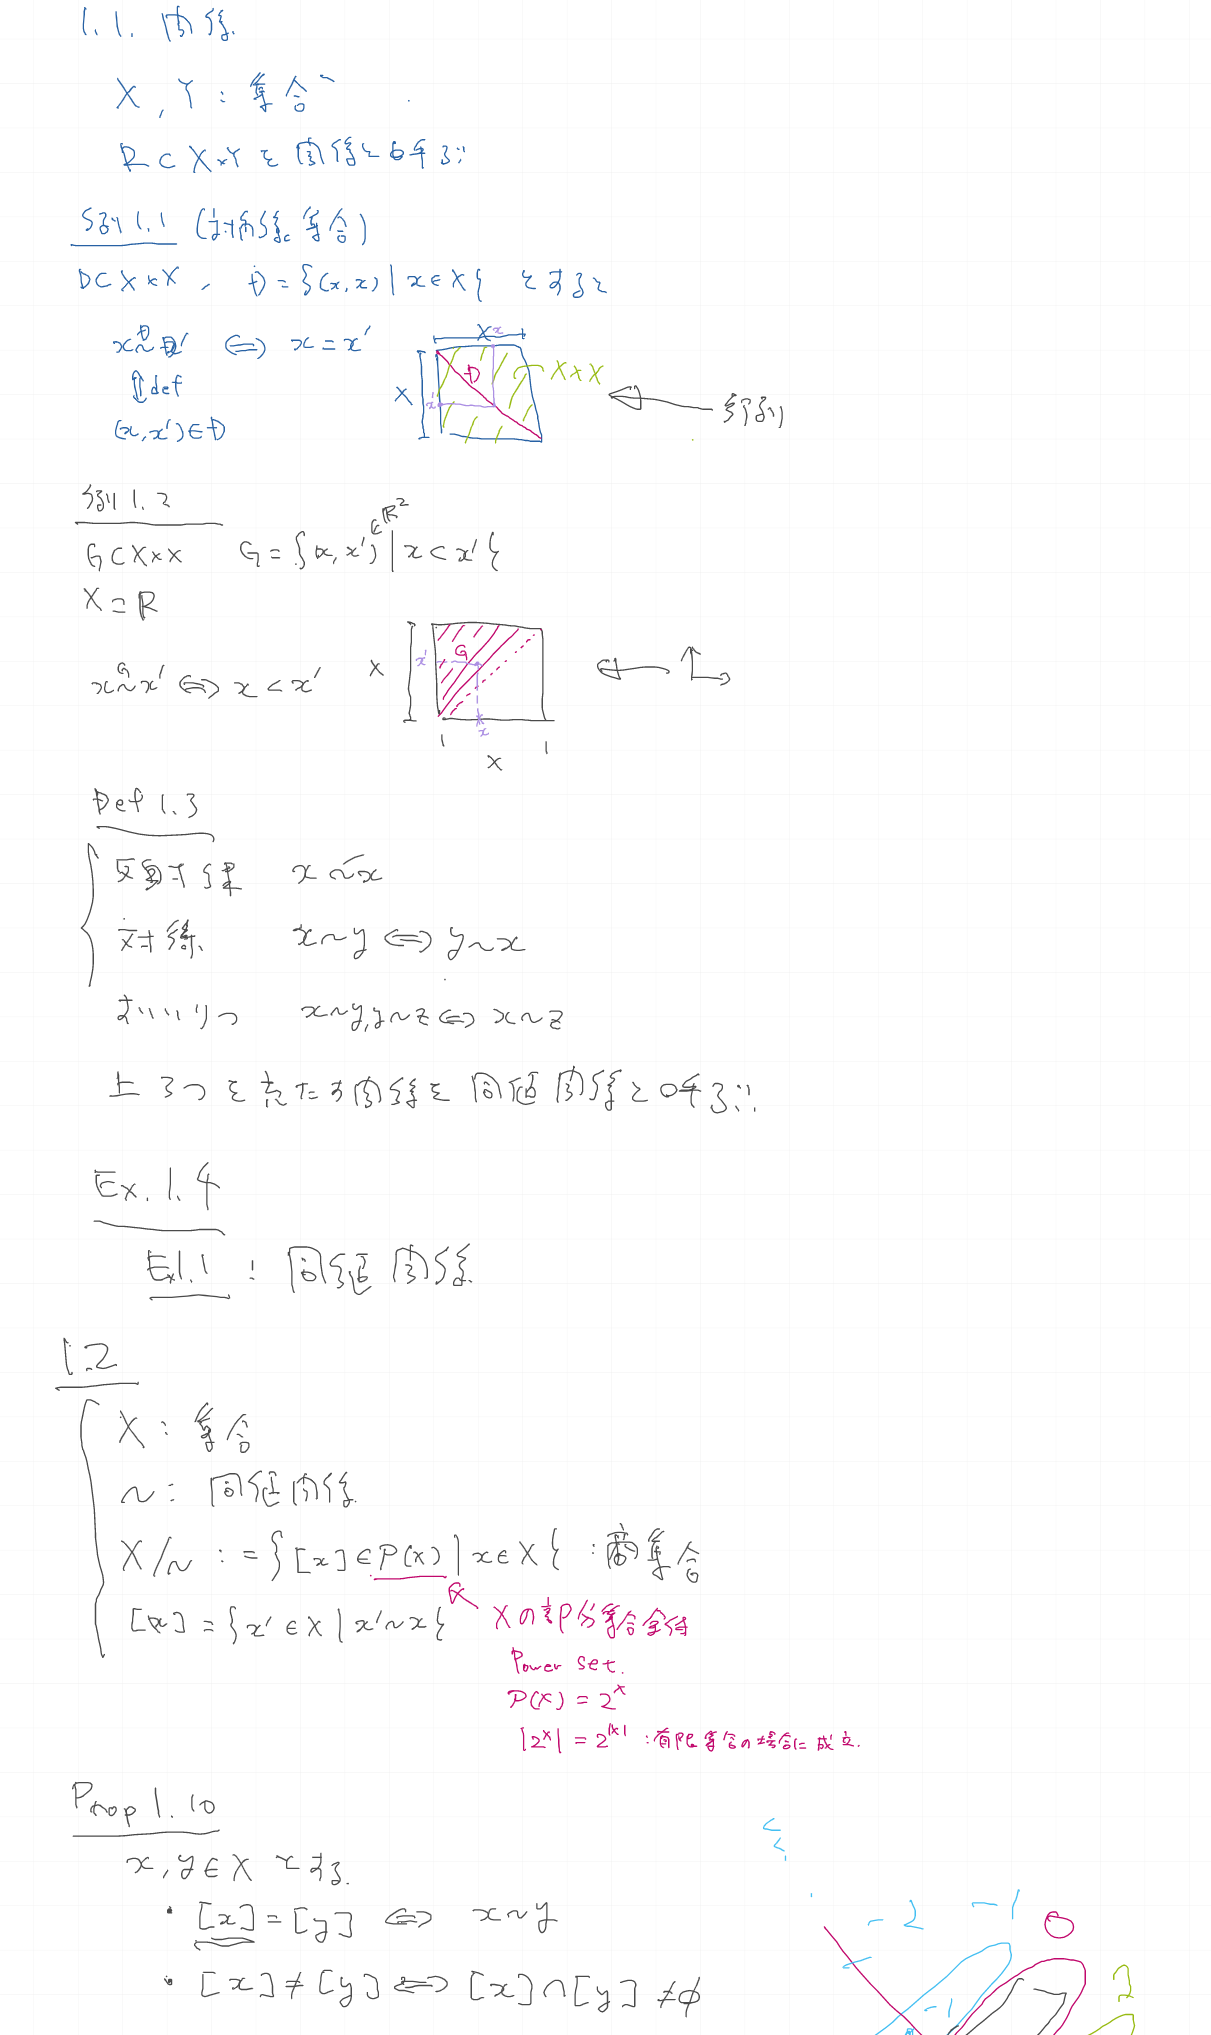 1.1. 関係
X, Y : 集合
R ⊂ X×Y を 関係と呼ぶ
例 1.1 (対角線集合)
D⊂X×X, D = {(x,x) | x∈X} とすると
x ~ᴰ x' ⇔ x = x'
⇕ def
(x,x')∈D
X
x
X
x'
D
X×X
行列
例 1.2
G⊂X×X G = {(x,x') ∈ℝ² | x < x'}
X = ℝ
x ~ᴳ x' ⇔ x < x'
X
x'
G
x
X
Def 1.3
反射律 x~x
対称 x~y ⇔ y~x
すいいりつ x~y, y~z ⇔ x~z
上3つを充たす関係を同値関係と呼ぶ
Ex. 1.4
Ex1.1 : 同値関係
1.2
X : 集合
~ : 同値関係
X/~ := {[x]∈P(X) | x∈X} : 商集合
[x] = {x'∈X | x'~x}
Xの部分集合全体
Power set.
P(X) = 2^X
|2^X| = 2^|X| : 有限集合の場合に成立.
Prop 1.10
x, y∈X とする.
・ [x] = [y] ⇔ x~y
・ [x] ≠ [y] ⇔ [x]∩[y] ≠ φ
-2 -1 0
-1
2